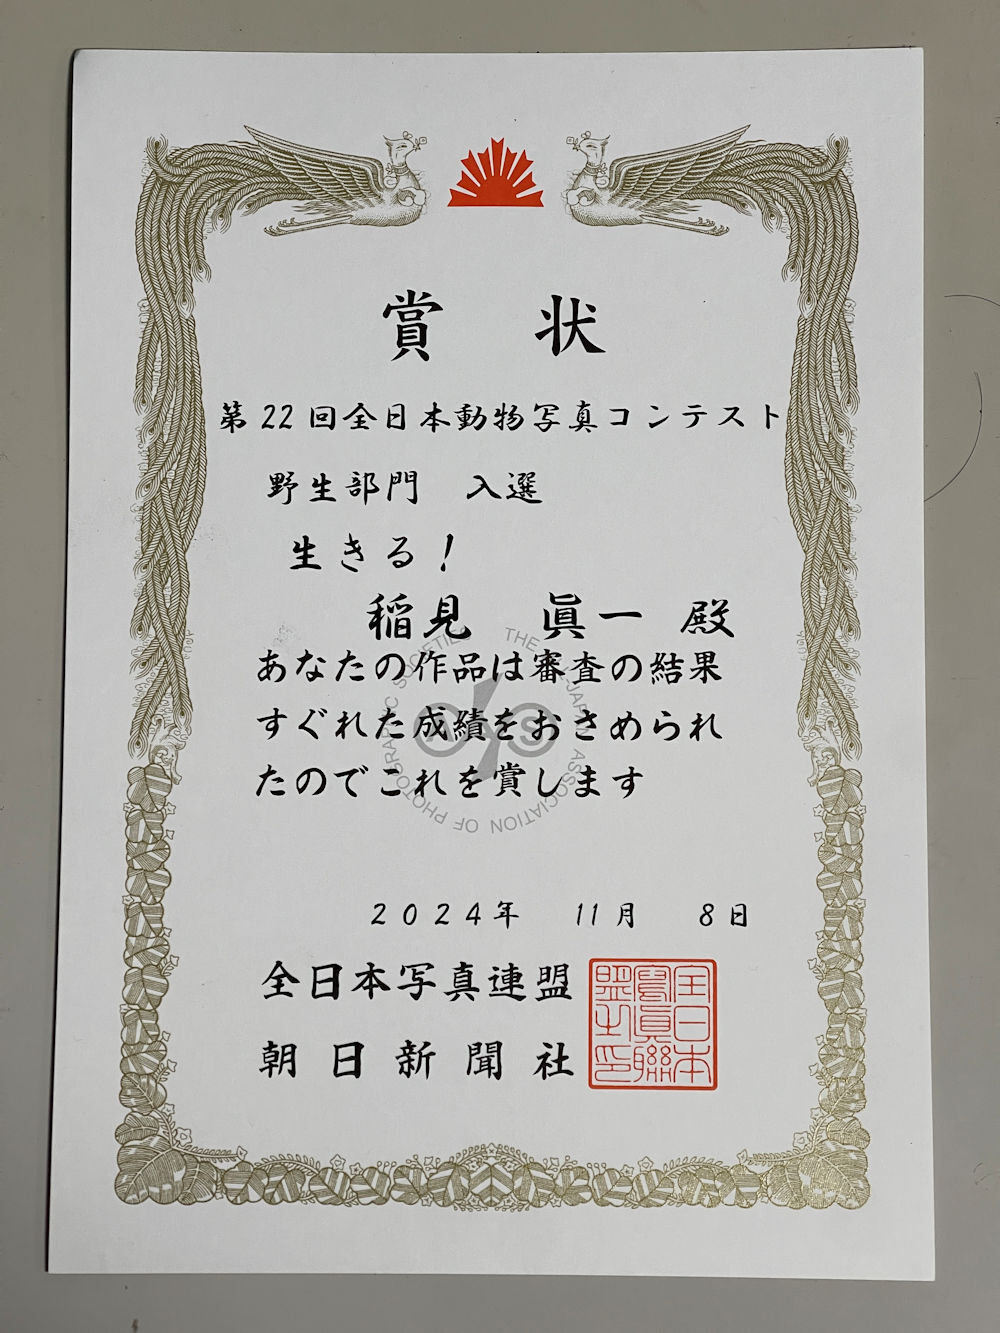 賞 状
第22回全日本動物写真コンテスト
野生部門 入選
生きる!
稲見 眞一 殿
あなたの作品は審査の結果
すぐれた成績をおさめられ
たのでこれを賞します
THE ALL-JAPAN ASSOCIATION OF PHOTOGRAPHIC SOCIETIES
2024年 11月 8日
全日本写真連盟
朝日新聞社
全日本
寫真聯
盟之印